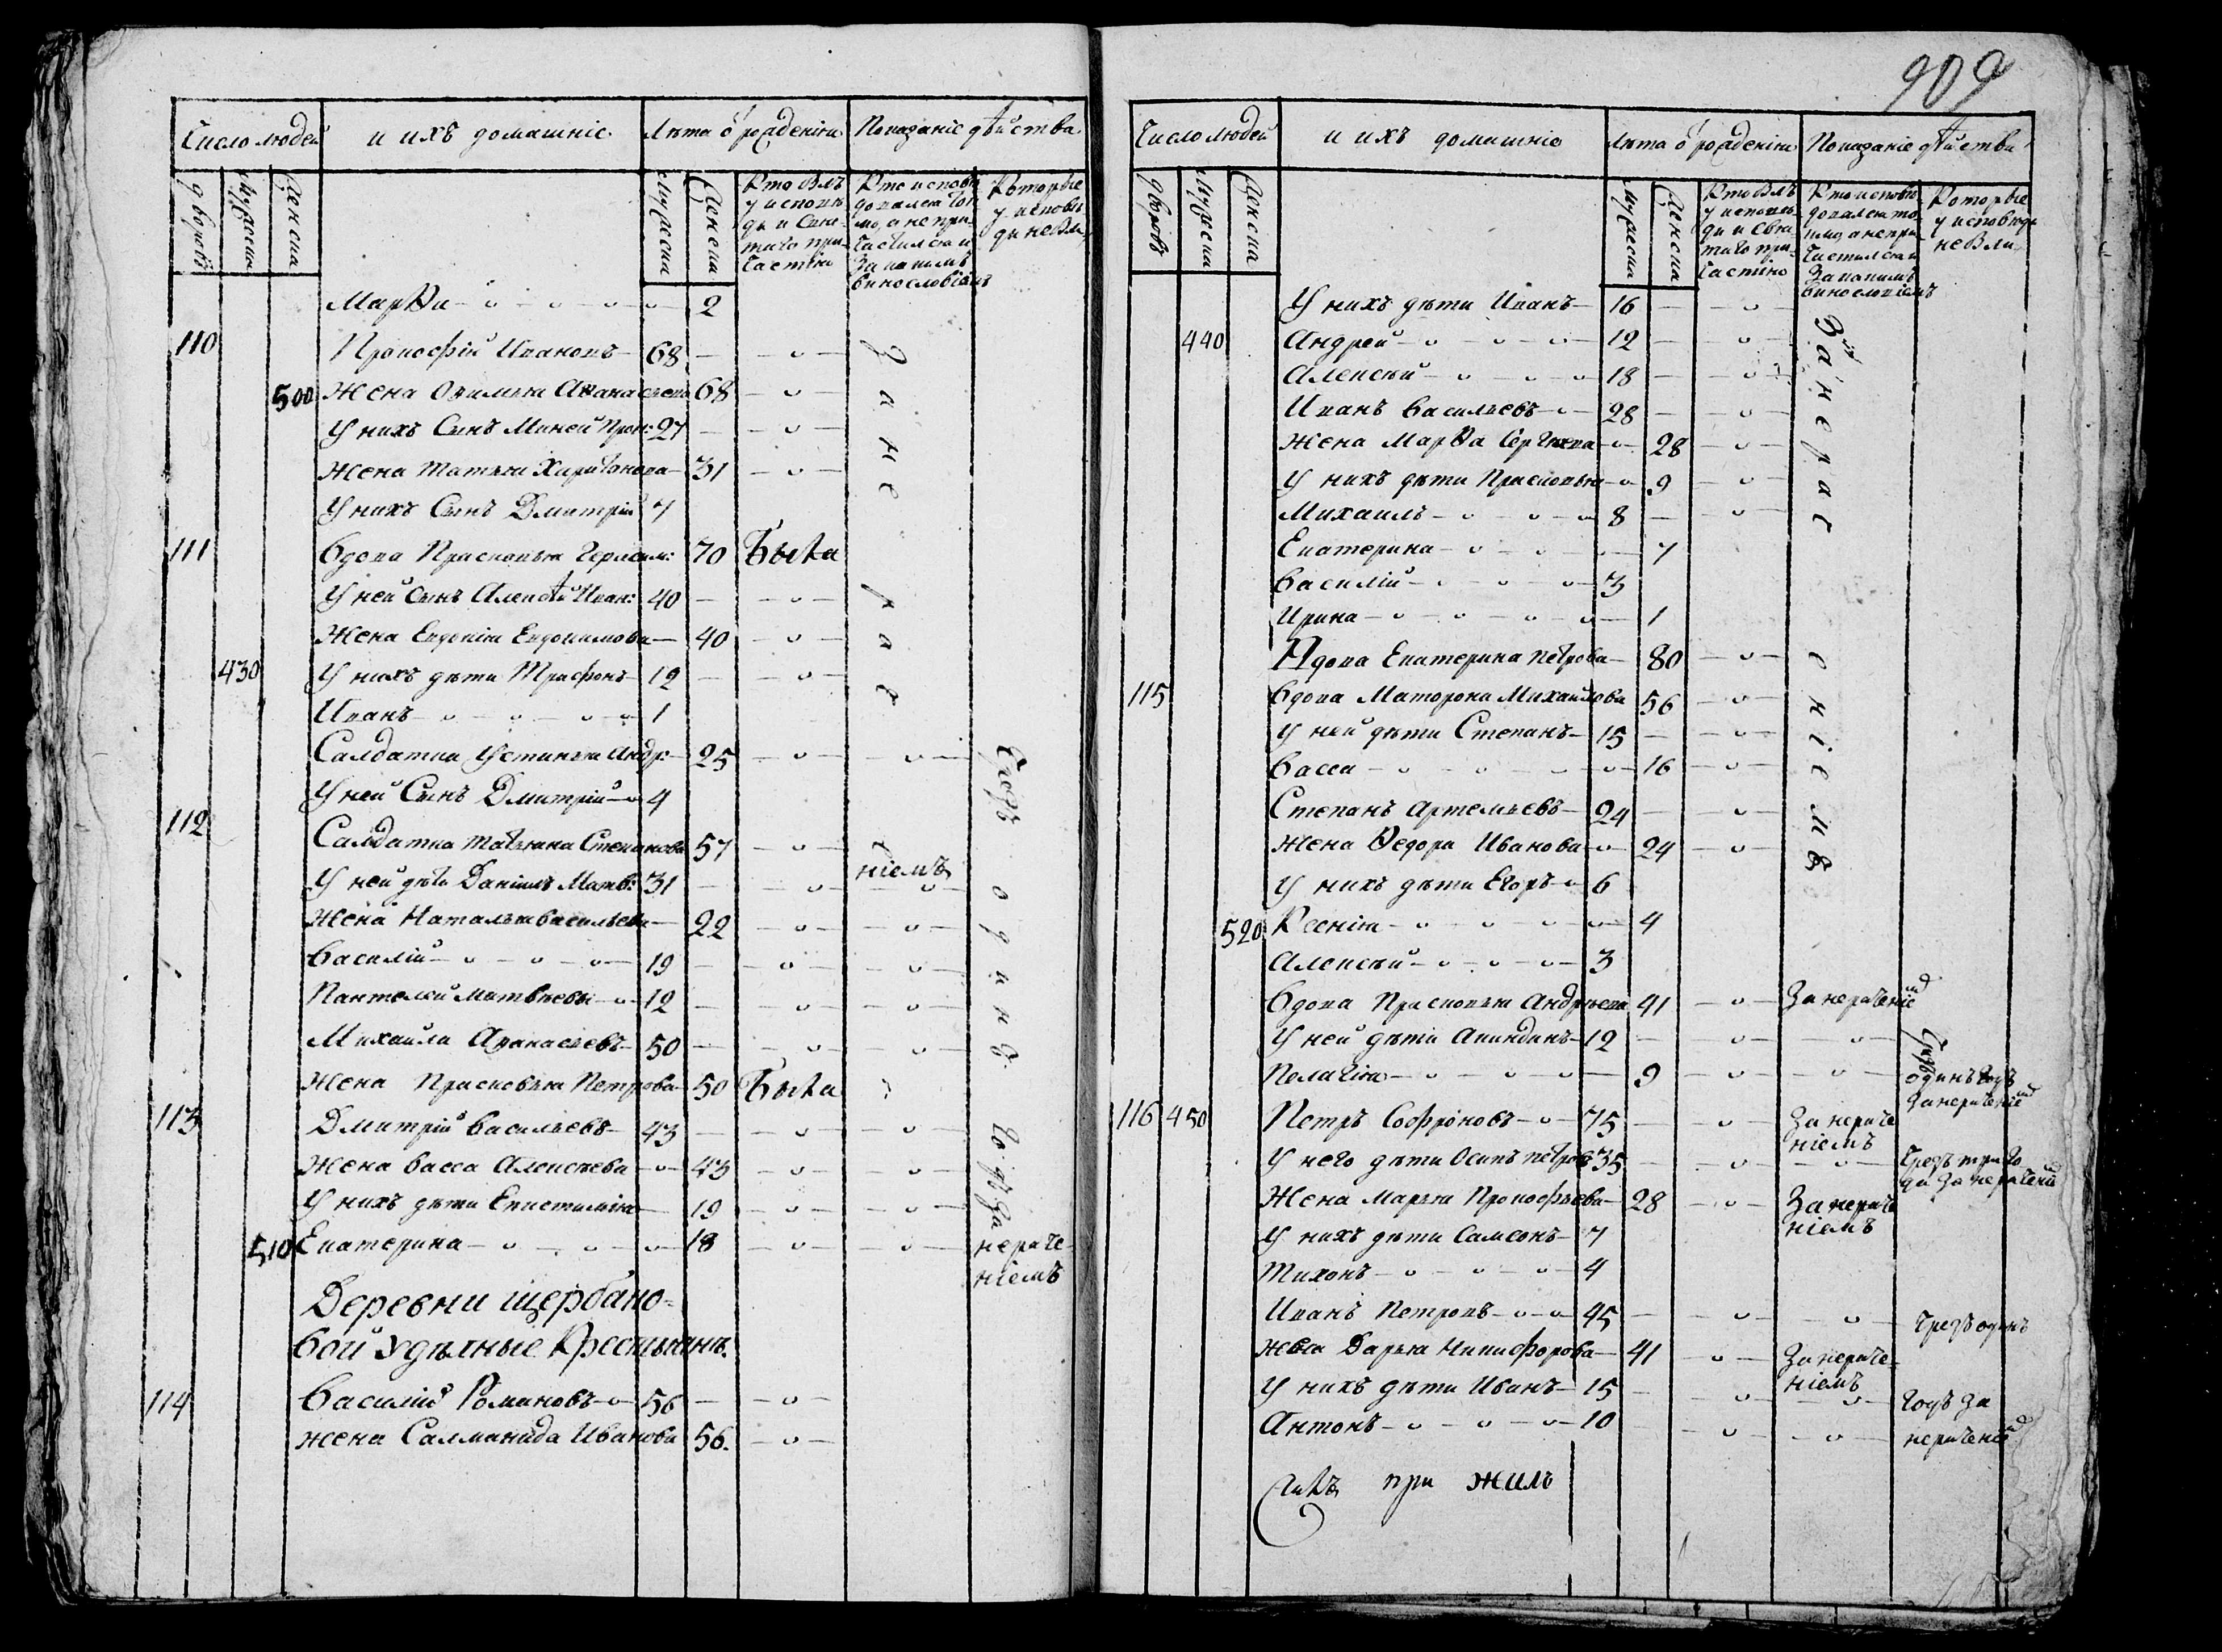 Число людей | и ихъ домашніе | Лѣта ѿ рожденія | Показаніе дѣйства
дворовъ | Мужеска | Женска | Мужеска | Женска | Кто былъ у исповѣди и святаго причастія | Кто исповѣдовался токмо, а не причастился и за какимъ винословіемъ | Которые у исповѣди не были
Марѳа 2
110 Прокофій Ивановъ 68
500 Жена Аѳанасьева 68
У нихъ Сынъ Миней Прок: 27
Жена Татьяна Харитонова 31
У нихъ Сынъ Дмитрій 7
111 Вдова Прасковья Герасим: 70 Была
У ней Сынъ Алексѣй Иван: 40
Жена Евдокія Евдокимова 40
430 У нихъ дѣти Трифонъ 12
Иванъ 1
Салдатка Устинья Андр: 25
У ней Сынъ Дмитрій 4
112 Салдатка Татьяна Степанова 57
За нераченіемъ
У ней дѣти Даніилъ Матв: 31
Жена Наталья Васильева 22
Василій 19
Пантелей Матвѣевъ 12
Михайла Аѳанасьевъ 50
Жена Прасковья Петрова 50 Была
113 Дмитрій Васильевъ 43
Жена Васса Алексѣева 43
У нихъ дѣти Епистимія 19
510 Екатерина 18
Чрезъ одинъ годъ за нераченіемъ
Деревни Щербако-
вой Удѣлные Крестьянъ.
114 Василій Романовъ 56
жена Салманида Иванова 56.
909
Число людей | и ихъ домашніе | Лѣта ѿ рожденія | Показаніе дѣйства
дворовъ | Мужеска | Женска | Мужеска | Женска | Кто былъ у исповѣди и святаго причастія | Кто исповѣдовался токмо, а не причастился и за какимъ винословіемъ | Которые у исповѣди не были
У нихъ дѣти Иванъ 16
440 Андрей 12
Алексѣй 18
Иванъ Васильевъ 28
Жена Марѳа Сергѣева 28
У нихъ дѣти Прасковья 9
Михаилъ 8
Екатерина 7
Василій 3
Ирина 1
Вдова Екатерина Петрова 80
115 Вдова Матрона Михайлова 56
У ней дѣти Степанъ 15
Васса 16
Степанъ Артемьевъ 24
Жена Ѳедора Иванова 24
У нихъ дѣти Егоръ 6
520 Ксенія 4
Алексѣй 3
За нераченіемъ
Вдова Прасковья Андреева 41 За нераченіемъ
У ней дѣти Акиндинъ 12
Пелагія 9 Чрезъ одинъ годъ за нераченіемъ
116 450 Петръ Софроновъ 75 За нераченіемъ
У него дѣти Осипъ Петровъ 35 Чрезъ три года за нераченіемъ
Жена Марья Прокофьева 28 За нераченіемъ
У нихъ дѣти Самсонъ 7
Тихонъ 4
Иванъ Петровъ 45 Чрезъ одинъ
Жена Дарья Никифорова 41 За нераченіемъ
У нихъ дѣти Иванъ 15 годъ за
Антонъ 10 нераченіемъ
при жилъ